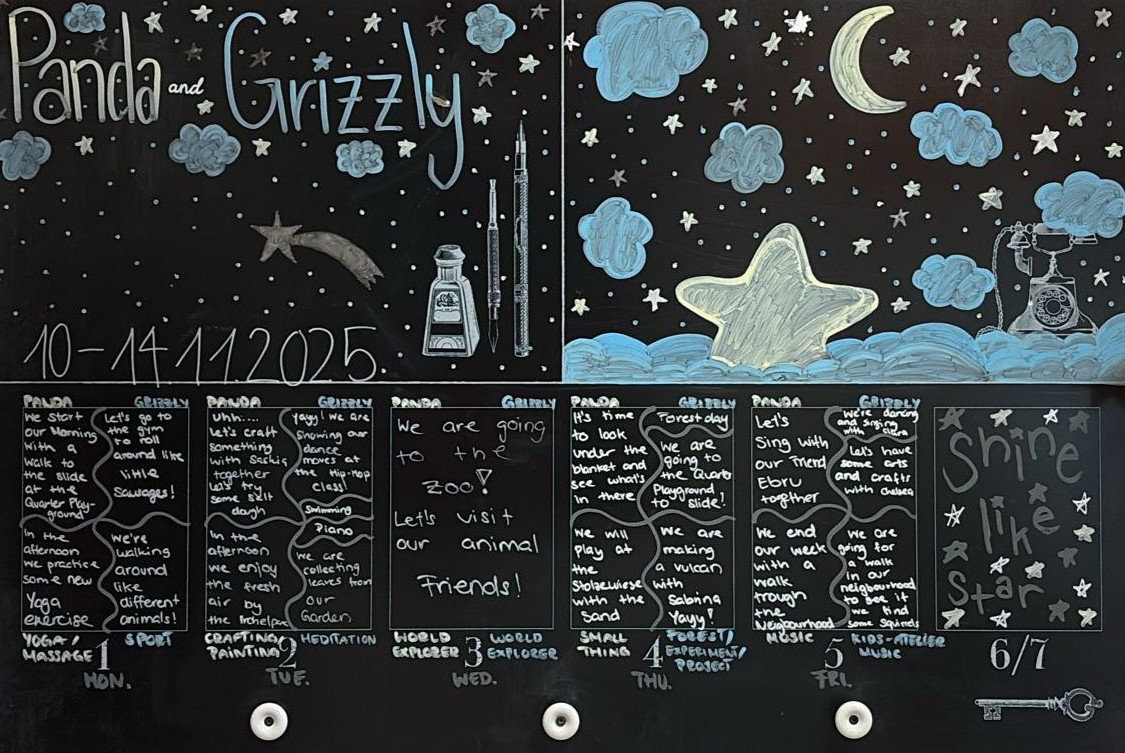 Panda and Grizzly
10-14.11.2025
PANDA
GRIZZLY
We start
our Morning
with a
walk to
the slide
at the
Quarter Play-
ground
Let's go to
the gym
to roll
around like
little
Sausages!
In the
afternoon
we practice
some new
Yoga
exercise
We're
walking
around
like
different
animals!
YOGA/
MASSAGE
SPORT
1
MON.
PANDA
GRIZZLY
Uhh....
Let's craft
something
with Saskia
together
Let's try
some Salt
dough
Yayy! We are
Showing our
dance
moves at
the Hip-Hop
Class!
Swimming
Piano
In the
afternoon
we enjoy
the fresh
air by
the
We are
collecting
leaves from
our
Garden
CRAFTING/
PAINTING
MEDITATION
2
TUE.
PANDA
GRIZZLY
We are going
to the
ZOO!
Let's visit
our animal
Friends!
WORLD
EXPLORER
WORLD
EXPLORER
3
WED.
PANDA
GRIZZLY
It's time
to look
under the
blanket and
see what's
in there
Forest day
We are
going to
the Quarter
Playground
to slide!
We will
play at
the
Stolzewiese
with the
Sand
We are
making
a vulcan
with
Sabrina
Yayy!
SMALL
THING
FOREST/
EXPERIMENT/
PROJECT
4
THU.
PANDA
GRIZZLY
Let's
Sing with
our friend
Ebru
together
We're dancing
and singing
with
Let's have
some arts
and crafts
with Chelsea
We end
our week
with a
walk
trough
the
Neigbourhood
We are
going for
a walk
in our
neigbourhood
to see if
we find
some Squirrels
MUSIC
KIDS-ATELIER
MUSIC
5
FRI.
Shine
like
Star
6/7